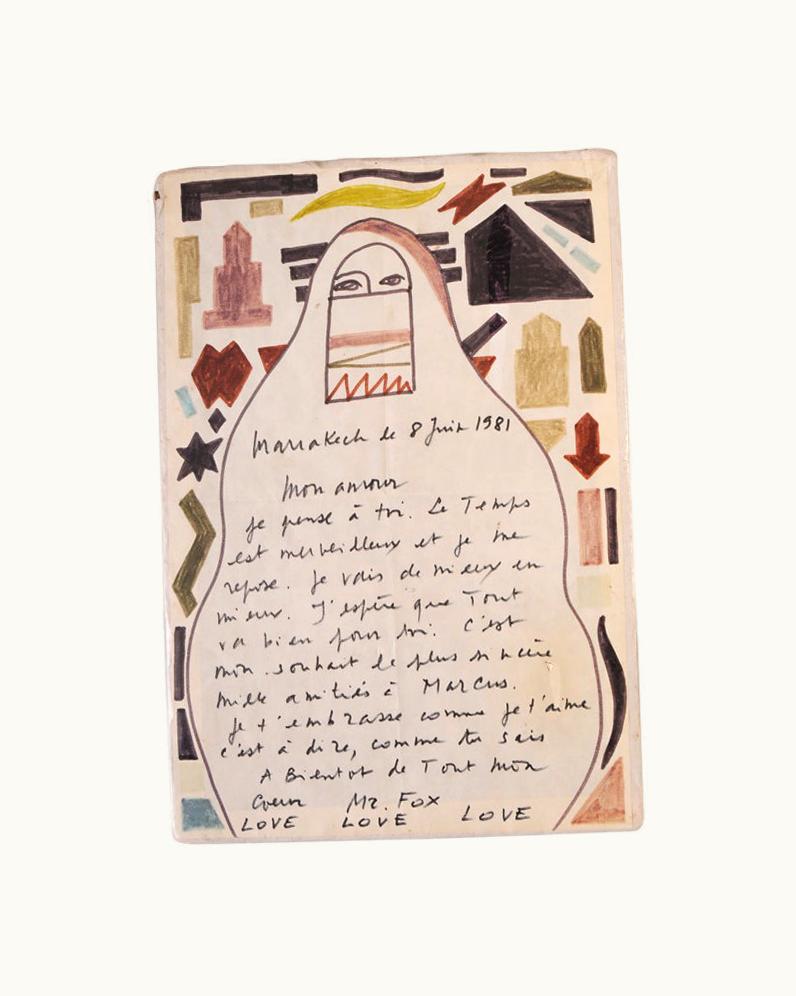 Marrakech le 8 Juin 1981
Mon amour
je pense à toi. Le Temps
est merveilleux et je me
repose. je vais de mieux en
mieux. J'espère que Tout
va bien pour toi. C'est
mon souhait le plus sincère
mille amitiés à Marcus.
je t'embrasse comme je t'aime
c'est à dire, comme tu sais
A Bientot de Tout mon
Coeur Mr. Fox
LOVE LOVE LOVE